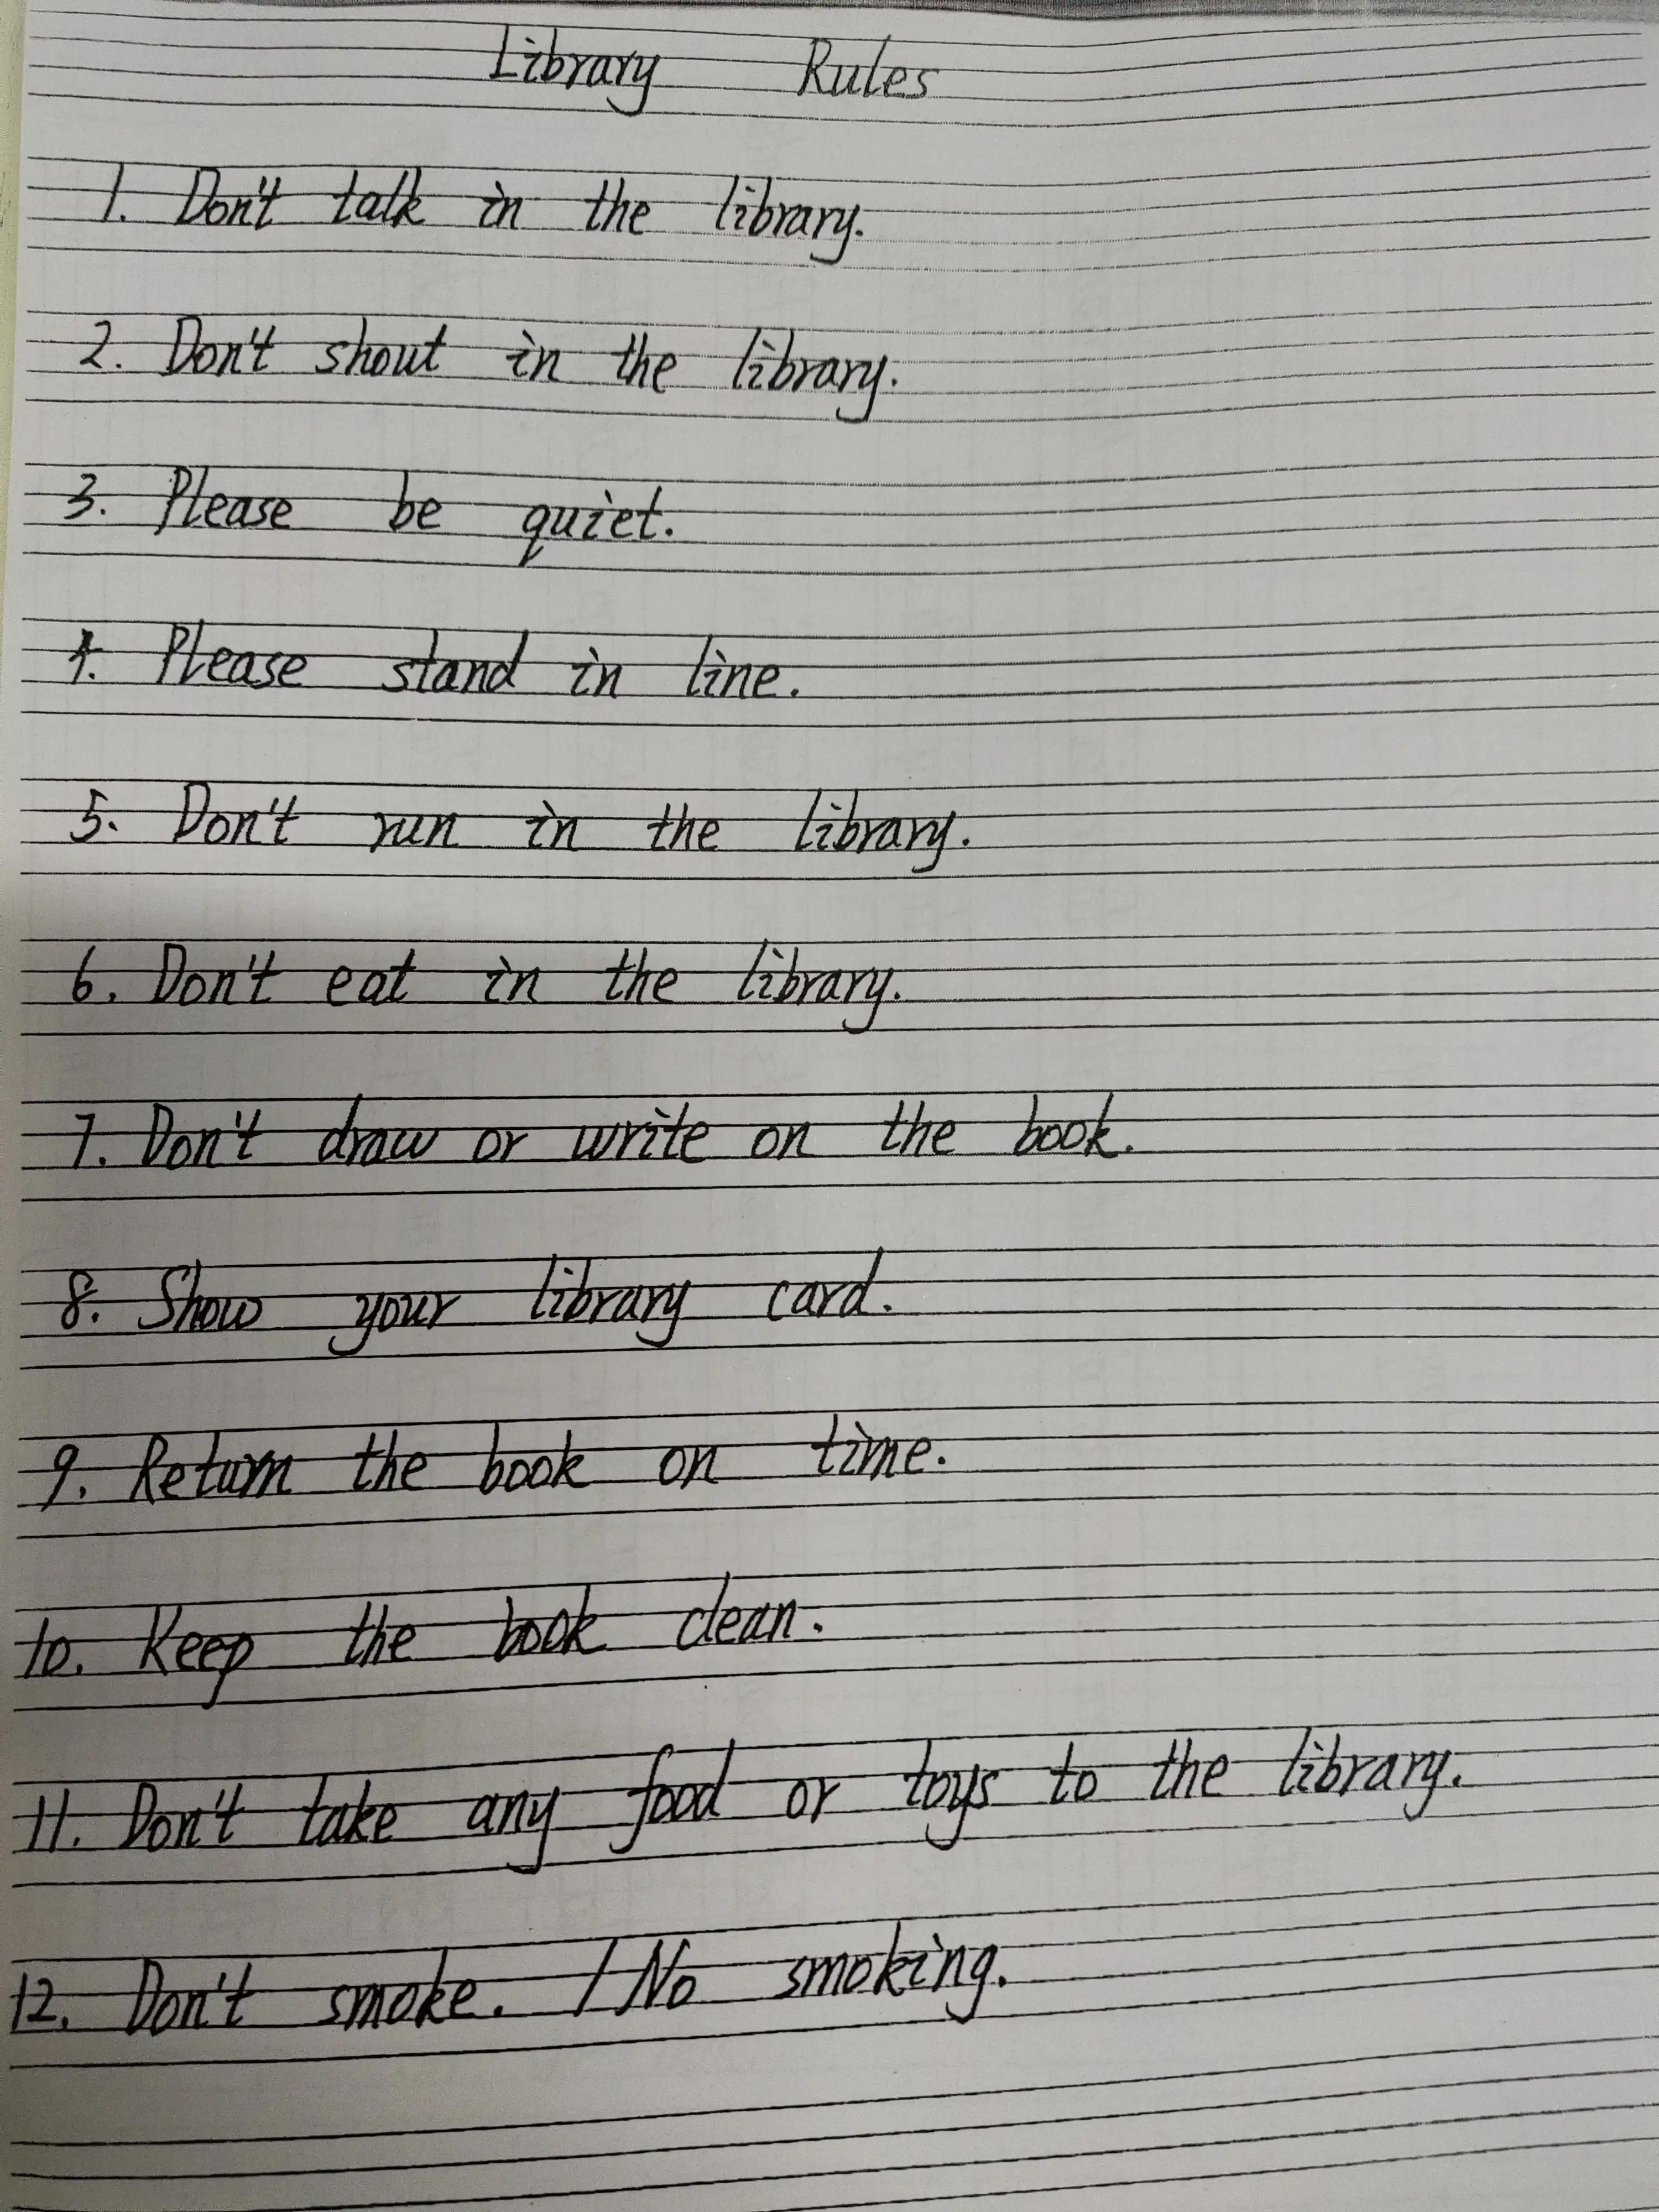 Library Rules
1. Don't talk in the library.
2. Don't shout in the library.
3. Please be quiet.
4. Please stand in line.
5. Don't run in the library.
6. Don't eat in the library.
7. Don't draw or write on the book.
8. Show your library card.
9. Return the book on time.
10. Keep the book clean.
11. Don't take any food or toys to the library.
12. Don't smoke. / No smoking.